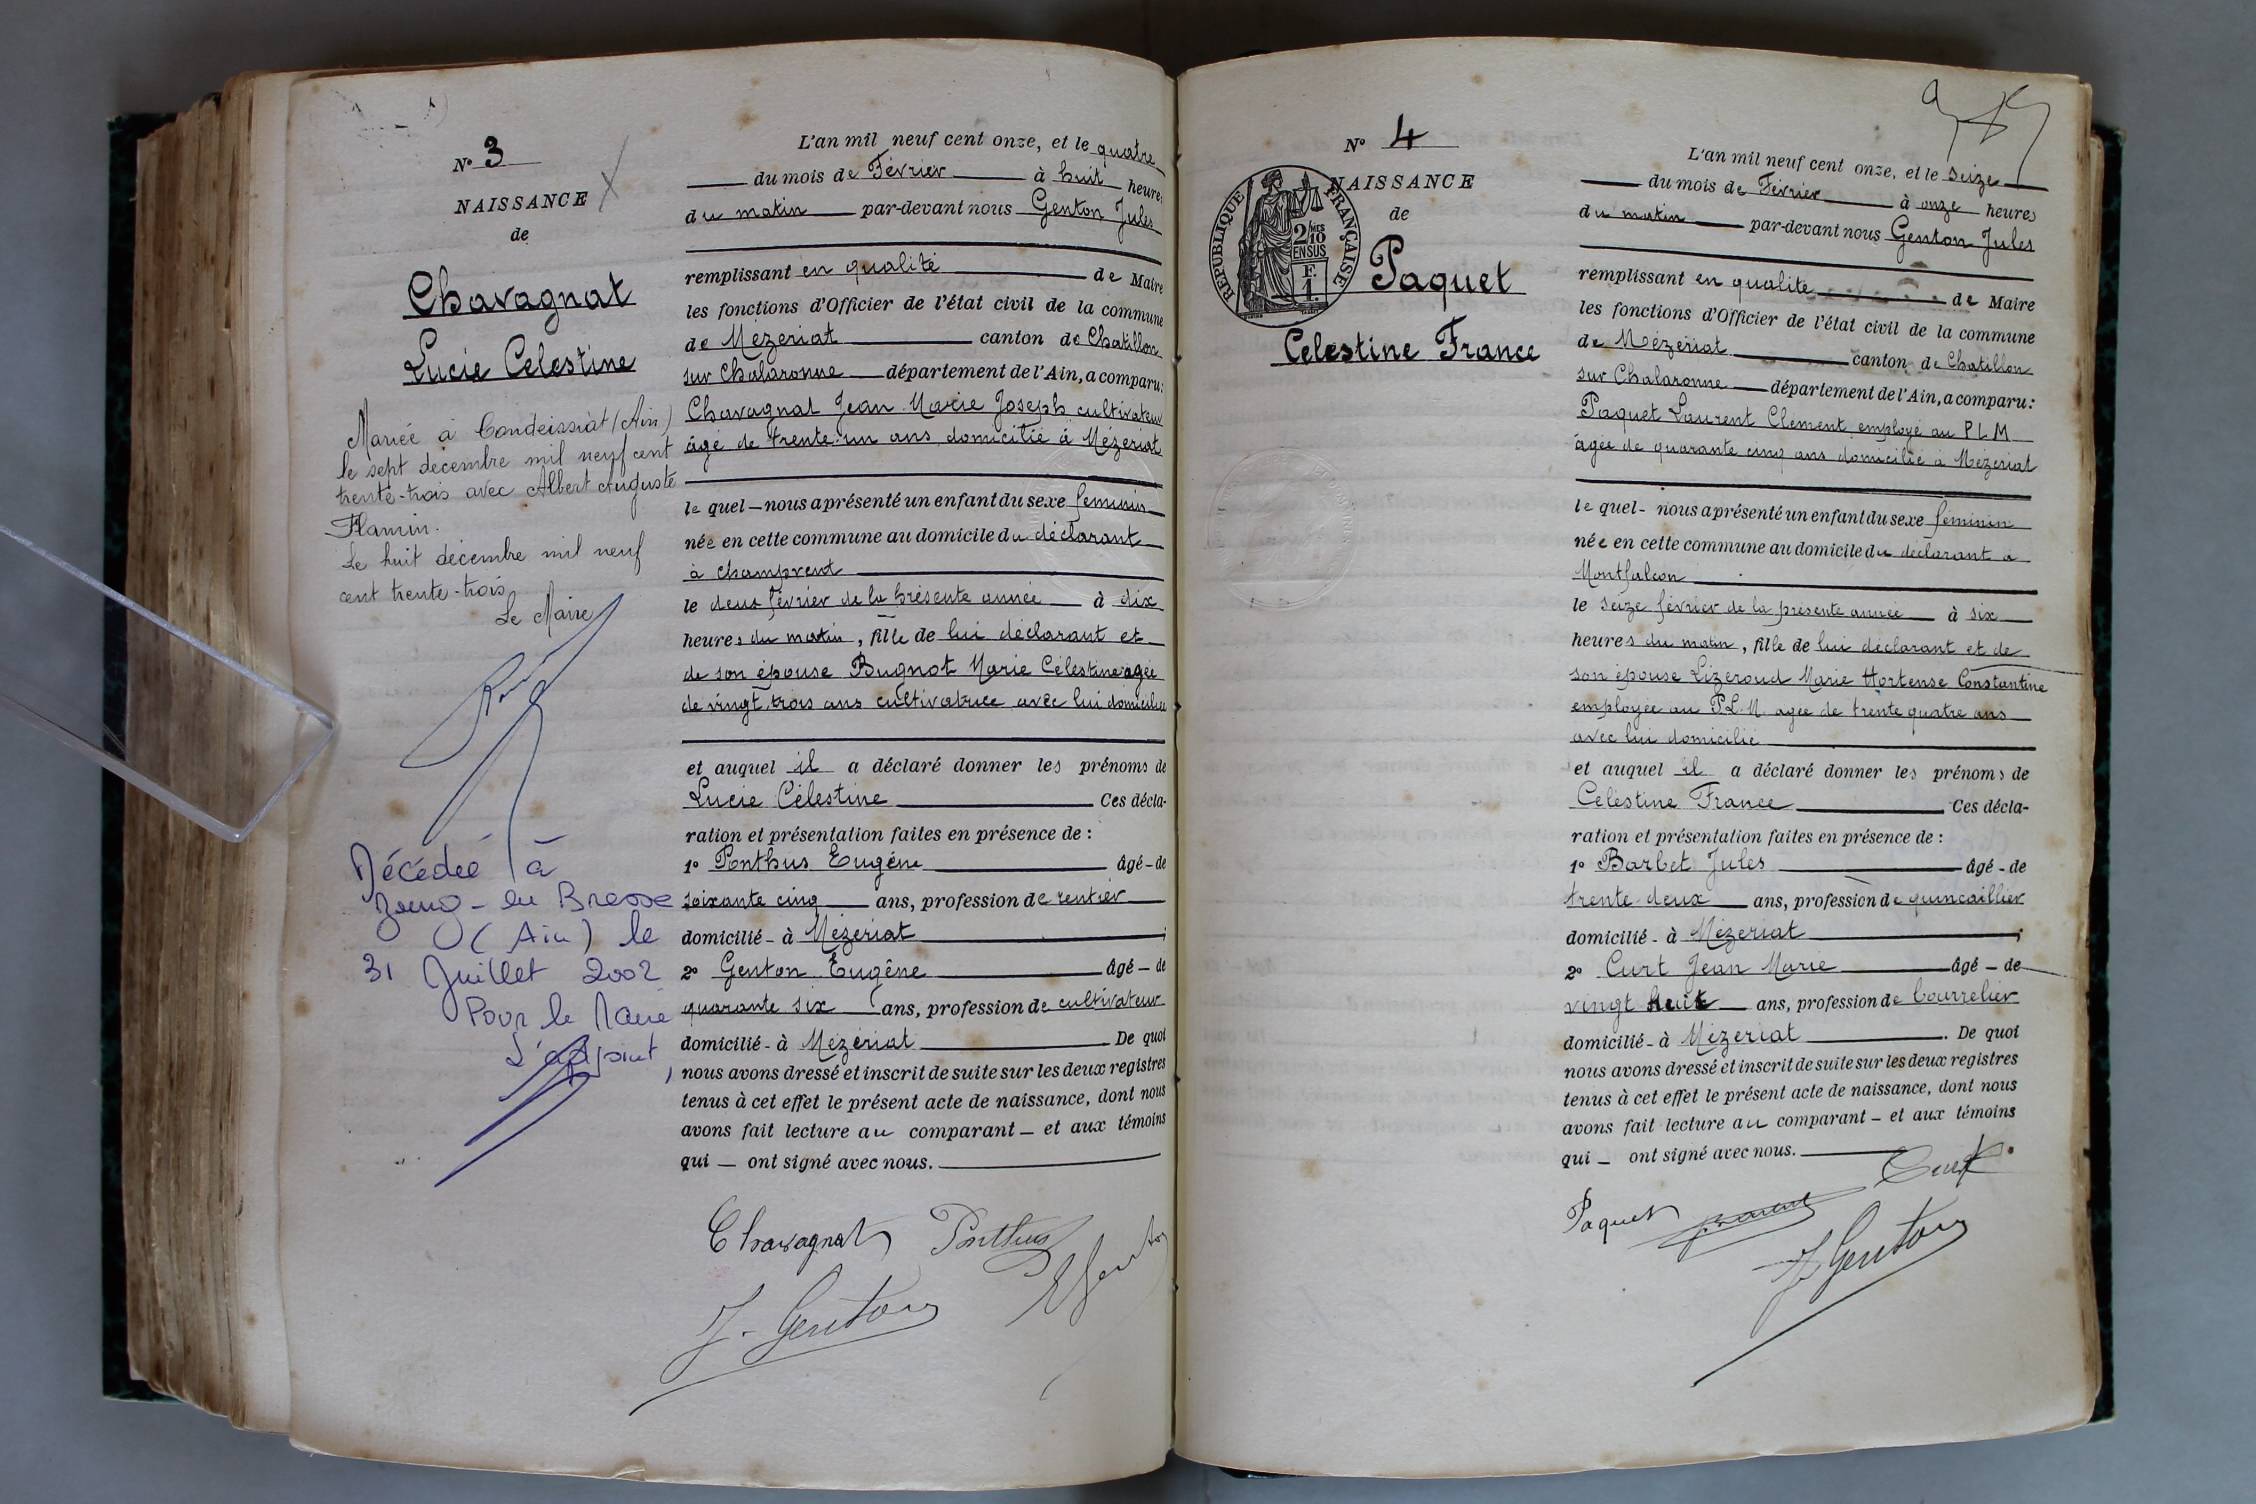 N° 3
NAISSANCE
de
Chavagnat
Lucie Célestine
Mariée à Condeissiat (Ain)
le sept décembre mil neuf cent
trente-trois avec Albert Auguste
Flamin.
Le huit décembre mil neuf
cent trente-trois
Le Maire
Décédée à
Bourg-en Bresse
(Ain) le
31 Juillet 2002
Pour le Maire
L'adjoint,
L'an mil neuf cent onze, et le quatre
du mois de Février à huit heures
du matin par-devant nous Genton Jules
remplissant en qualité de Maire
les fonctions d'Officier de l'état civil de la commune
de Mézériat canton de Chatillon
sur Chalaronne département de l'Ain, a comparu:
Chavagnat Jean Marie Joseph cultivateur
âgé de trente-un ans domicilié à Mézériat
lequel nous a présenté un enfant du sexe féminin
née en cette commune au domicile du déclarant
à Champvent
le deux février de la présente année à dix
heures du matin, fille de lui déclarant et
de son épouse Bugnot Marie Célestine agée
de vingt trois ans cultivatrice avec lui domiciliée
et auquel il a déclaré donner les prénoms de
Lucie Célestine Ces décla-
ration et présentation faites en présence de :
1° Ponthus Eugène âgé-de
soixante cinq ans, profession de rentier
domicilié - à Mézériat ;
2° Genton Eugène âgé - de
quarante six ans, profession de cultivateur
domicilié - à Mézériat De quoi
nous avons dressé et inscrit de suite sur les deux registres
tenus à cet effet le présent acte de naissance, dont nous
avons fait lecture au comparant - et aux témoins
qui - ont signé avec nous.
Chavagnat Ponthus
E Genton
J. Genton
N° 4
NAISSANCE
de
REPUBLIQUE FRANÇAISE
2/10 MES
EN SUS
F.
1.
Paquet
Célestine France
L'an mil neuf cent onze, et le seize
du mois de Février à onze heures
du matin par-devant nous Genton Jules
remplissant en qualité de Maire
les fonctions d'Officier de l'état civil de la commune
de Mézériat canton de Chatillon
sur Chalaronne département de l'Ain, a comparu:
Paquet Laurent Clément employé au P L M
âgée de quarante cinq ans domicilié à Mézériat
lequel - nous a présenté un enfant du sexe féminin
née en cette commune au domicile du déclarant a
Montfalcon
le seize février de la présente année à six
heures du matin, fille de lui déclarant et de
son épouse Lizeroud Marie Hortense Constantine
employée au P.L.M. agée de trente quatre ans
avec lui domicilié
et auquel il a déclaré donner les prénoms de
Célestine France Ces décla-
ration et présentation faites en présence de :
1° Barbet Jules âgé - de
trente deux ans, profession de quincaillier
domicilié - à Mézériat ;
2° Curt Jean Marie âgé - de
vingt huit ans, profession de bourrelier
domicilié - à Mézériat . De quoi
nous avons dressé et inscrit de suite sur les deux registres
tenus à cet effet le présent acte de naissance, dont nous
avons fait lecture au comparant - et aux témoins
qui - ont signé avec nous.
Curt
Paquet
J Genton